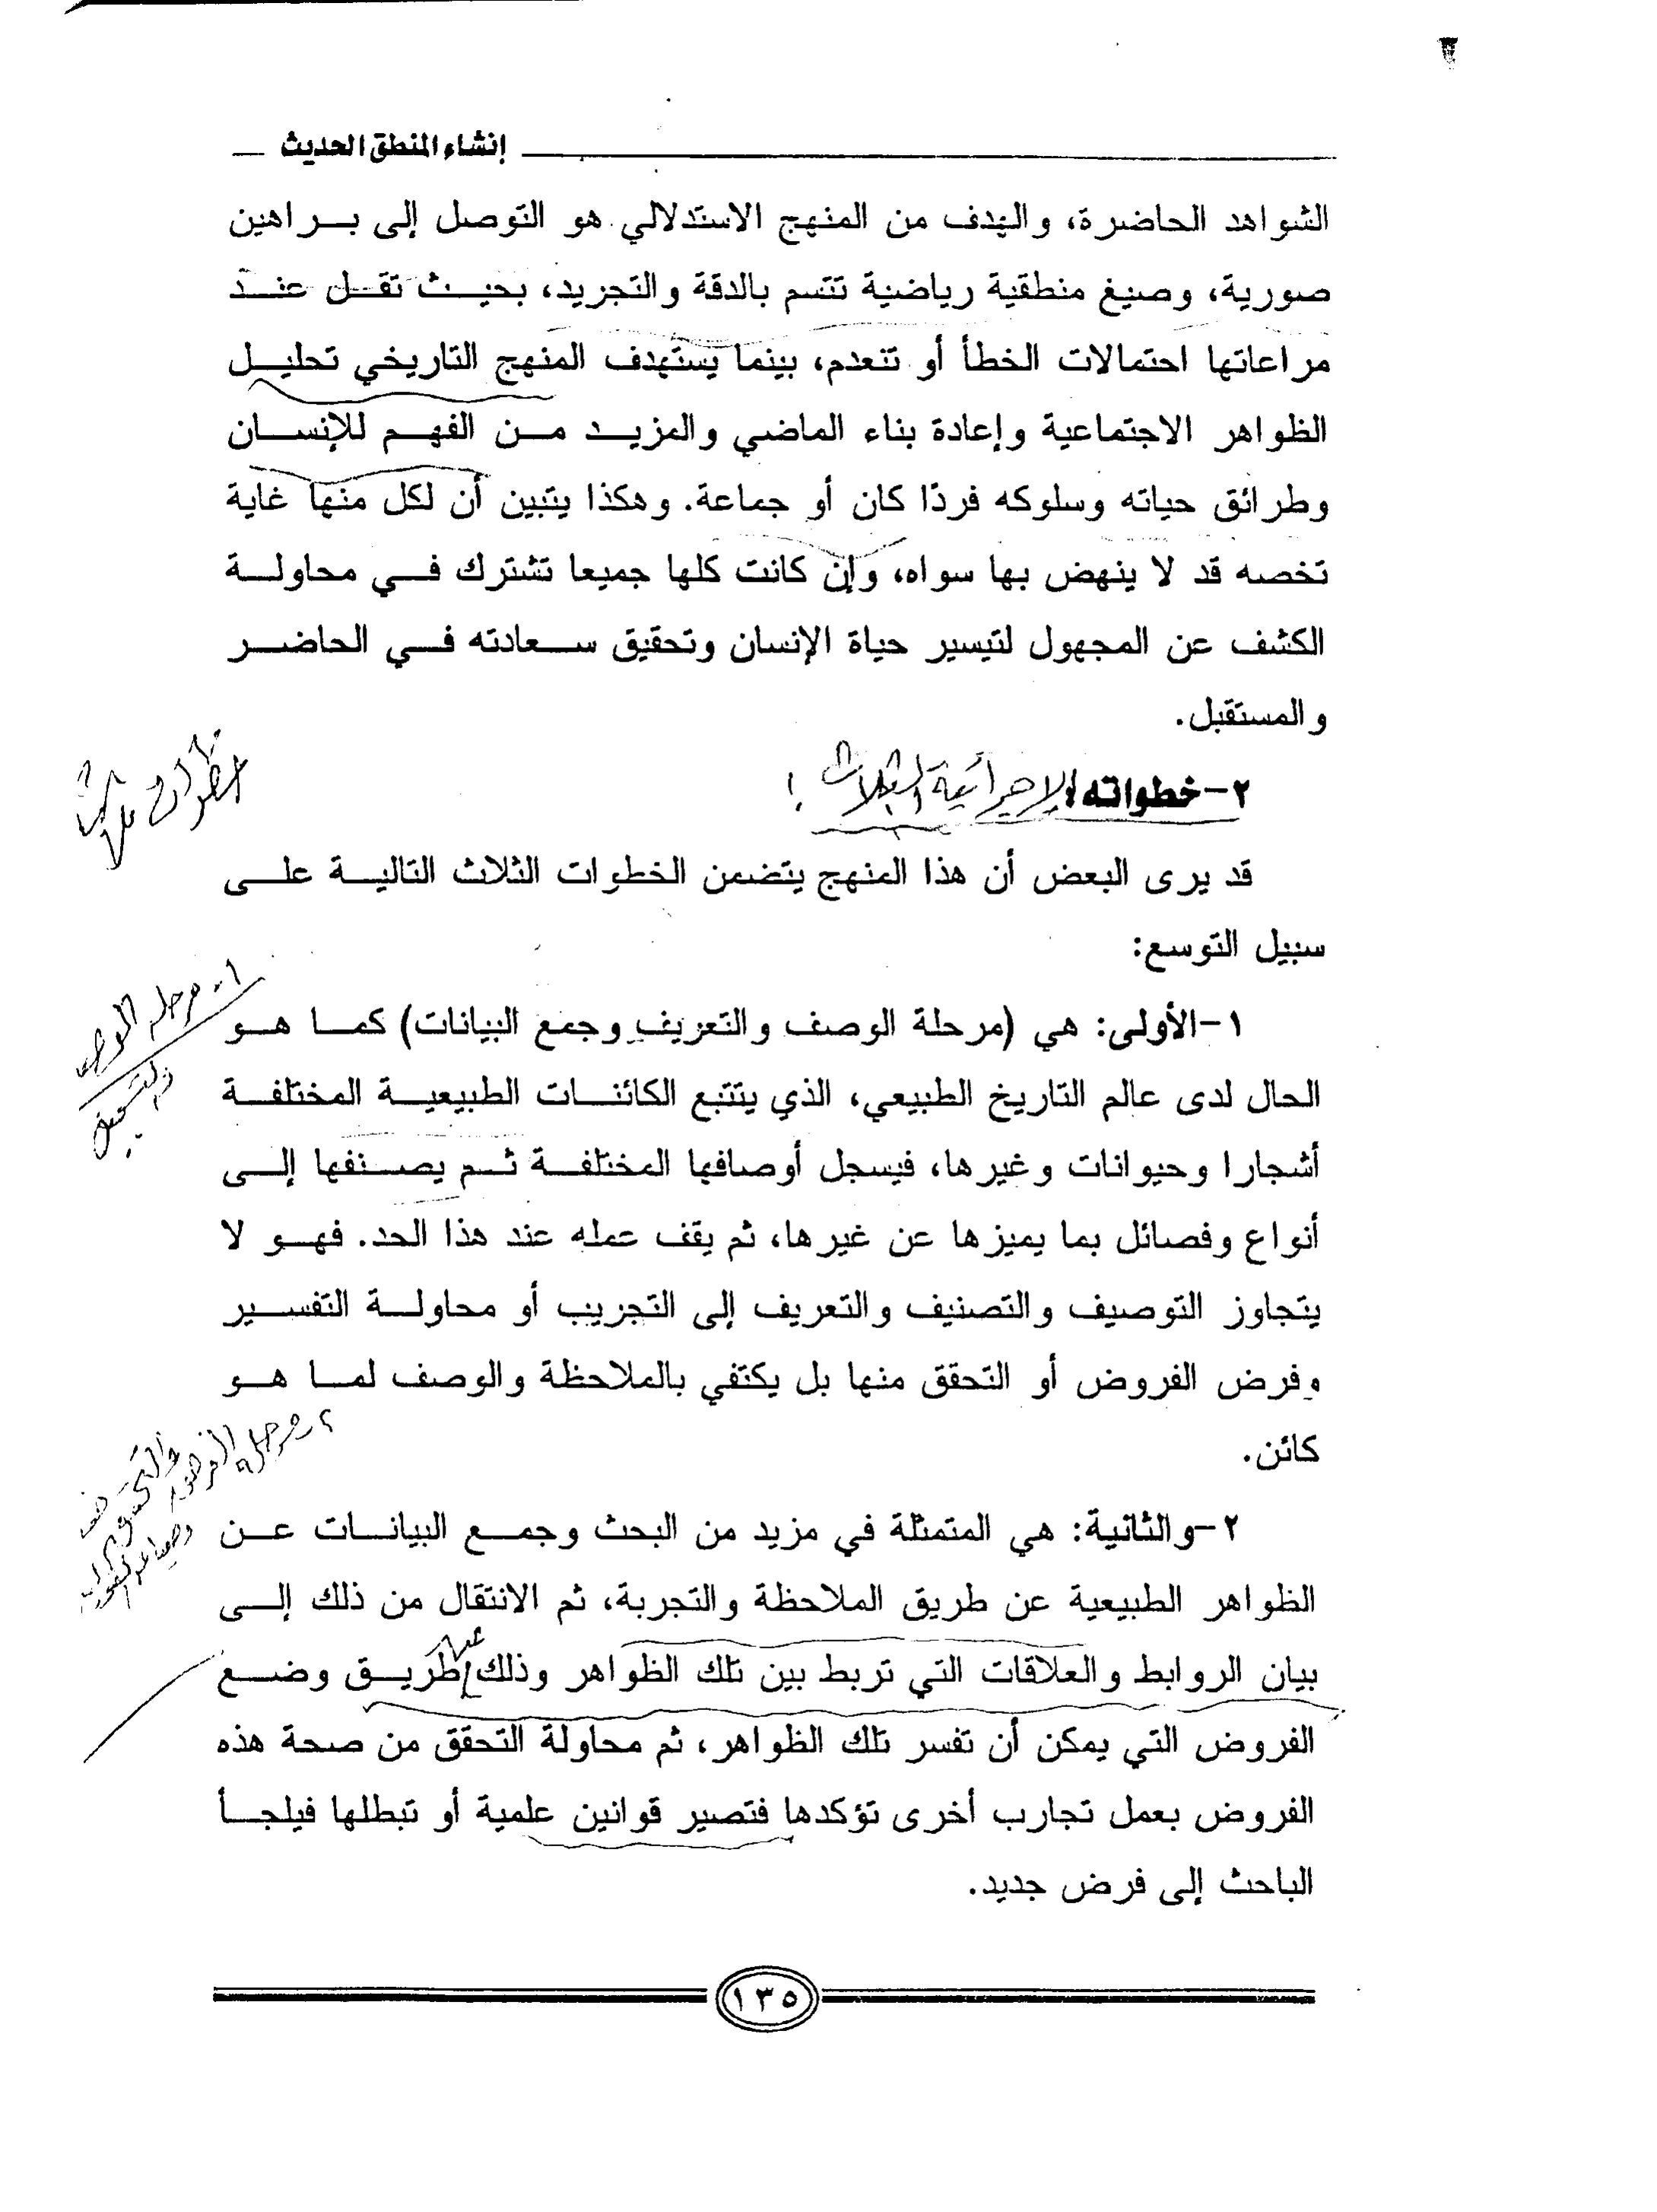 إنشاء المنطق الحديث
الشواهد الحاضرة، والهدف من المنهج الاستدلالي هو التوصل إلى براهين
صورية، وصيغ منطقية رياضية تتسم بالدقة والتجريد، بحيث تقل عند
مراعاتها احتمالات الخطأ أو تنعدم، بينما يستهدف المنهج التاريخي تحليل
الظواهر الاجتماعية وإعادة بناء الماضي والمزيد من الفهم للإنسان
وطرائق حياته وسلوكه فردًا كان أو جماعة. وهكذا يتبين أن لكل منها غاية
تخصه قد لا ينهض بها سواه، وإن كانت كلها جميعا تشترك في محاولة
الكشف عن المجهول لتيسير حياة الإنسان وتحقيق سعادته في الحاضر
والمستقبل.
٢-خطواته الإجرائية الثلاث:
قد يرى البعض أن هذا المنهج يتضمن الخطوات الثلاث التالية على
سبيل التوسع:
١- مرحلة الوصف
والتصنيف
١-الأولى: هي (مرحلة الوصف والتعريف وجمع البيانات) كما هو
الحال لدى عالم التاريخ الطبيعي، الذي يتتبع الكائنات الطبيعية المختلفة
أشجارا وحيوانات وغيرها، فيسجل أوصافها المختلفة ثم يصنفها إلى
أنواع وفصائل بما يميزها عن غيرها، ثم يقف عمله عند هذا الحد. فهو لا
يتجاوز التوصيف والتصنيف والتعريف إلى التجريب أو محاولة التفسير
وفرض الفروض أو التحقق منها بل يكتفي بالملاحظة والوصف لما هو
كائن.
٢- مرحلة الفروض
٢-والثانية: هي المتمثلة في مزيد من البحث وجمع البيانات عن
الظواهر الطبيعية عن طريق الملاحظة والتجربة، ثم الانتقال من ذلك إلى
بيان الروابط والعلاقات التي تربط بين تلك الظواهر وذلك عن طريق وضع
الفروض التي يمكن أن تفسر تلك الظواهر، ثم محاولة التحقق من صحة هذه
الفروض بعمل تجارب أخرى تؤكدها فتصير قوانين علمية أو تبطلها فيلجأ
الباحث إلى فرض جديد.
١٣٥